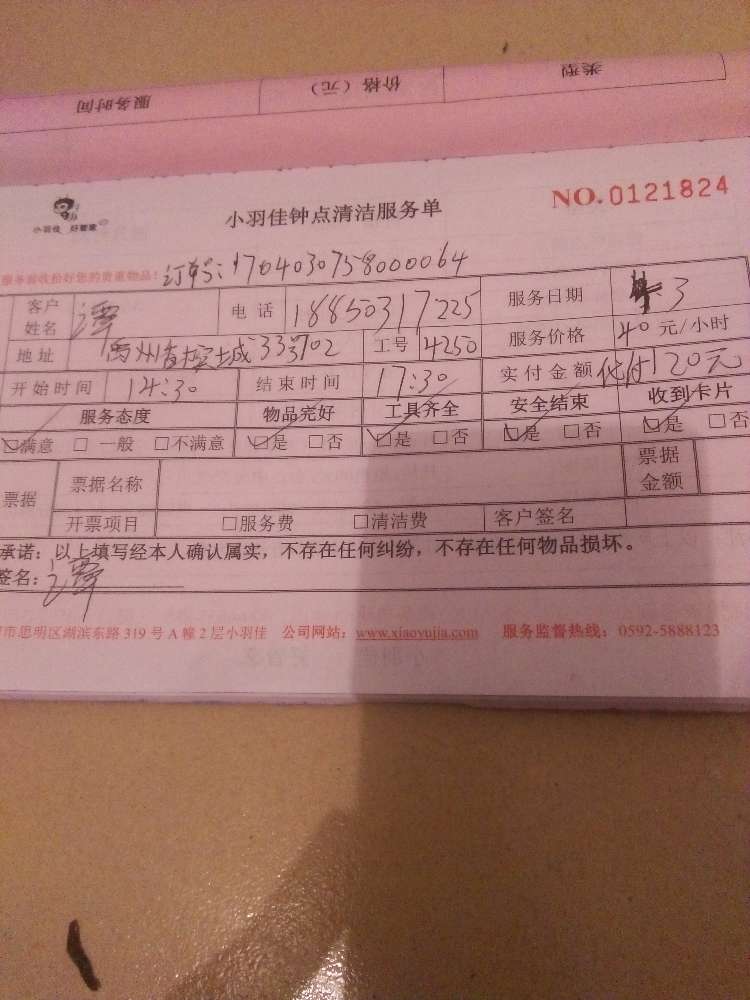 服务时间 价格（元） 类型
小羽佳 好管家
小羽佳钟点清洁服务单
NO.0121824
服务前收拾好您的贵重物品！ 订单号：1704030758000064
客户姓名 谭 电话 18850317225 服务日期 4.3
地址 禹州香槟城333702 工号 4250 服务价格 40元/小时
开始时间 14:30 结束时间 17:30 实付金额 代付120元
服务态度 物品完好 工具齐全 安全结束 收到卡片
☑满意 □一般 □不满意 ☑是 □否 ☑是 □否 ☑是 □否 ☑是 □否
票据 票据名称 票据金额
开票项目 □服务费 □清洁费 客户签名
承诺：以上填写经本人确认属实，不存在任何纠纷，不存在任何物品损坏。
签名：谭
市思明区湖滨东路319号A幢2层小羽佳 公司网站：www.xiaoyujia.com 服务监督热线：0592-5888123